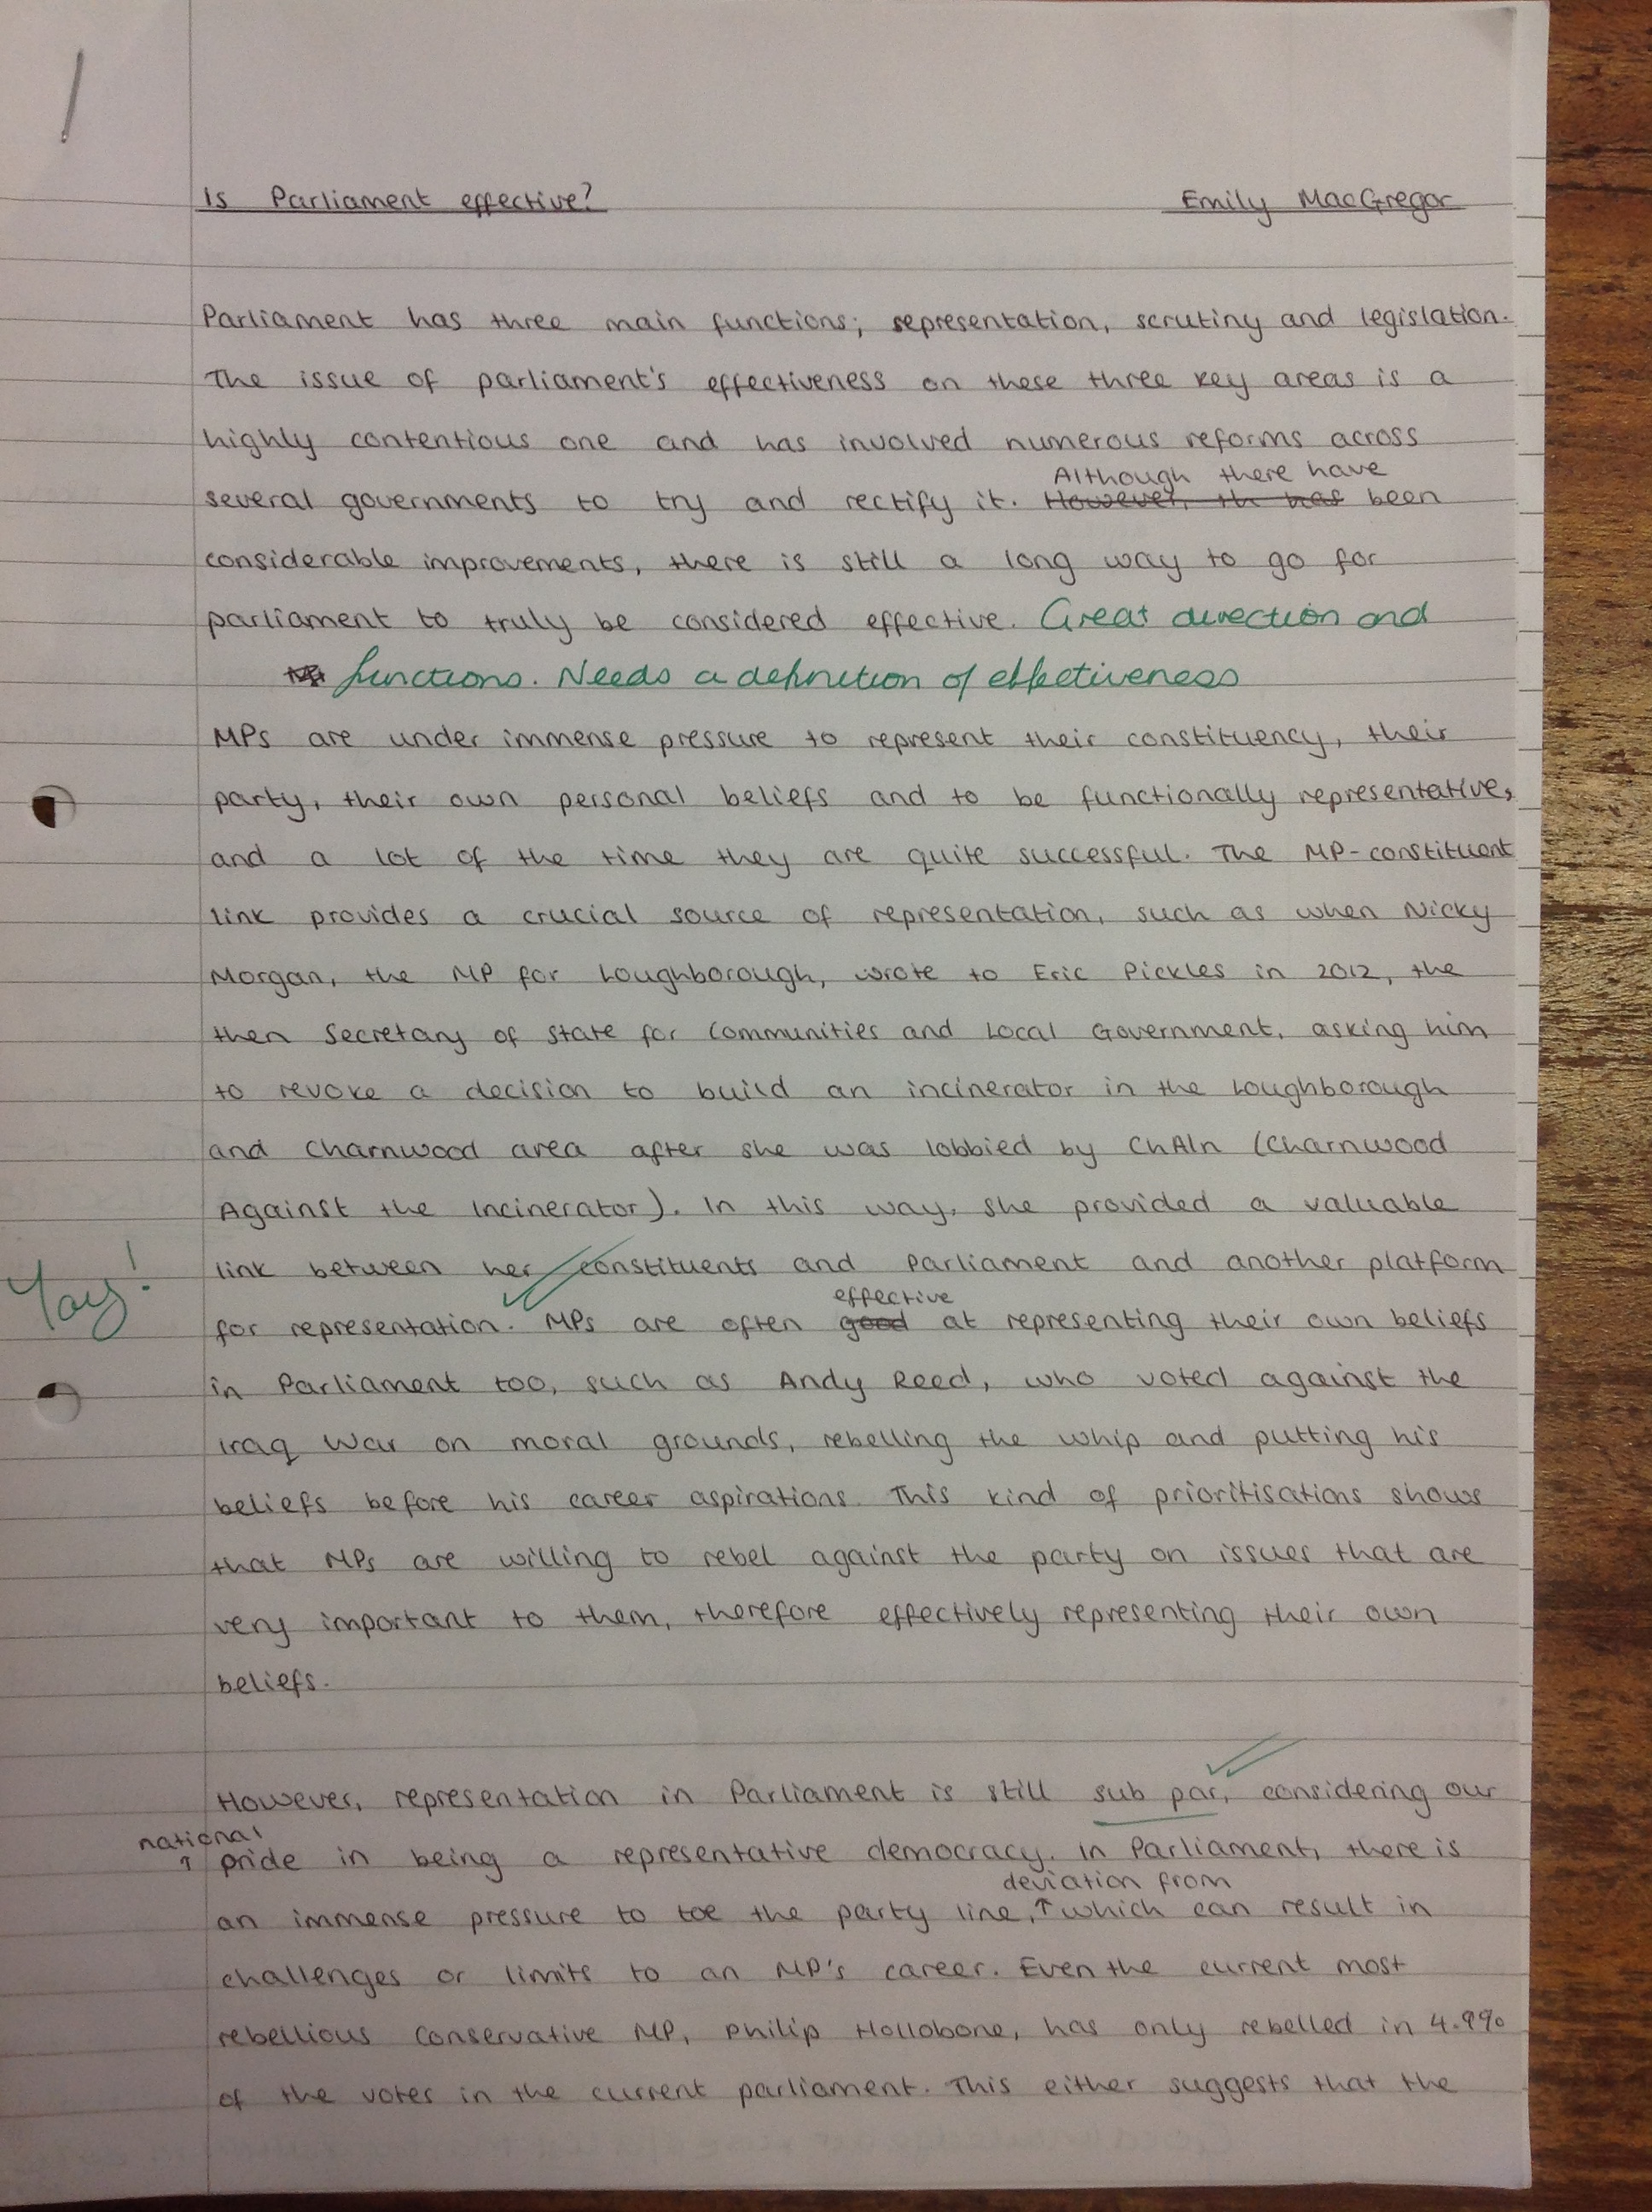 Is Parliament effective? Emily MacGregor
Parliament has three main functions; representation, scrutiny and legislation.
The issue of parliament's effectiveness on these three key areas is a
highly contentious one and has involved numerous reforms across
Although there have
several governments to try and rectify it. However, th has been
considerable improvements, there is still a long way to go for
parliament to truly be considered effective. Great direction and
functions. Needs a definition of effectiveness
MPs are under immense pressure to represent their constituency, their
party, their own personal beliefs and to be functionally representative,
and a lot of the time they are quite successful. The MP-constituent
link provides a crucial source of representation, such as when Nicky
Morgan, the MP for Loughborough, wrote to Eric Pickles in 2012, the
then Secretary of State for Communities and Local Government, asking him
to revoke a decision to build an incinerator in the Loughborough
and Charnwood area after she was lobbied by ChAIn (Charnwood
Against the Incinerator). In this way, she provided a valuable
link between her constituents and Parliament and another platform
Yay!
effective
for representation. MPs are often good at representing their own beliefs
in Parliament too, such as Andy Reed, who voted against the
Iraq War on moral grounds, rebelling the whip and putting his
beliefs before his career aspirations. This kind of prioritisations shows
that MPs are willing to rebel against the party on issues that are
very important to them, therefore effectively representing their own
beliefs.
However, representation in Parliament is still sub par, considering our
national
pride in being a representative democracy. In Parliament, there is
deviation from
an immense pressure to toe the party line, which can result in
challenges or limits to an MP's career. Even the current most
rebellious Conservative MP, Philip Hollobone, has only rebelled in 4.9%
of the votes in the current parliament. This either suggests that the